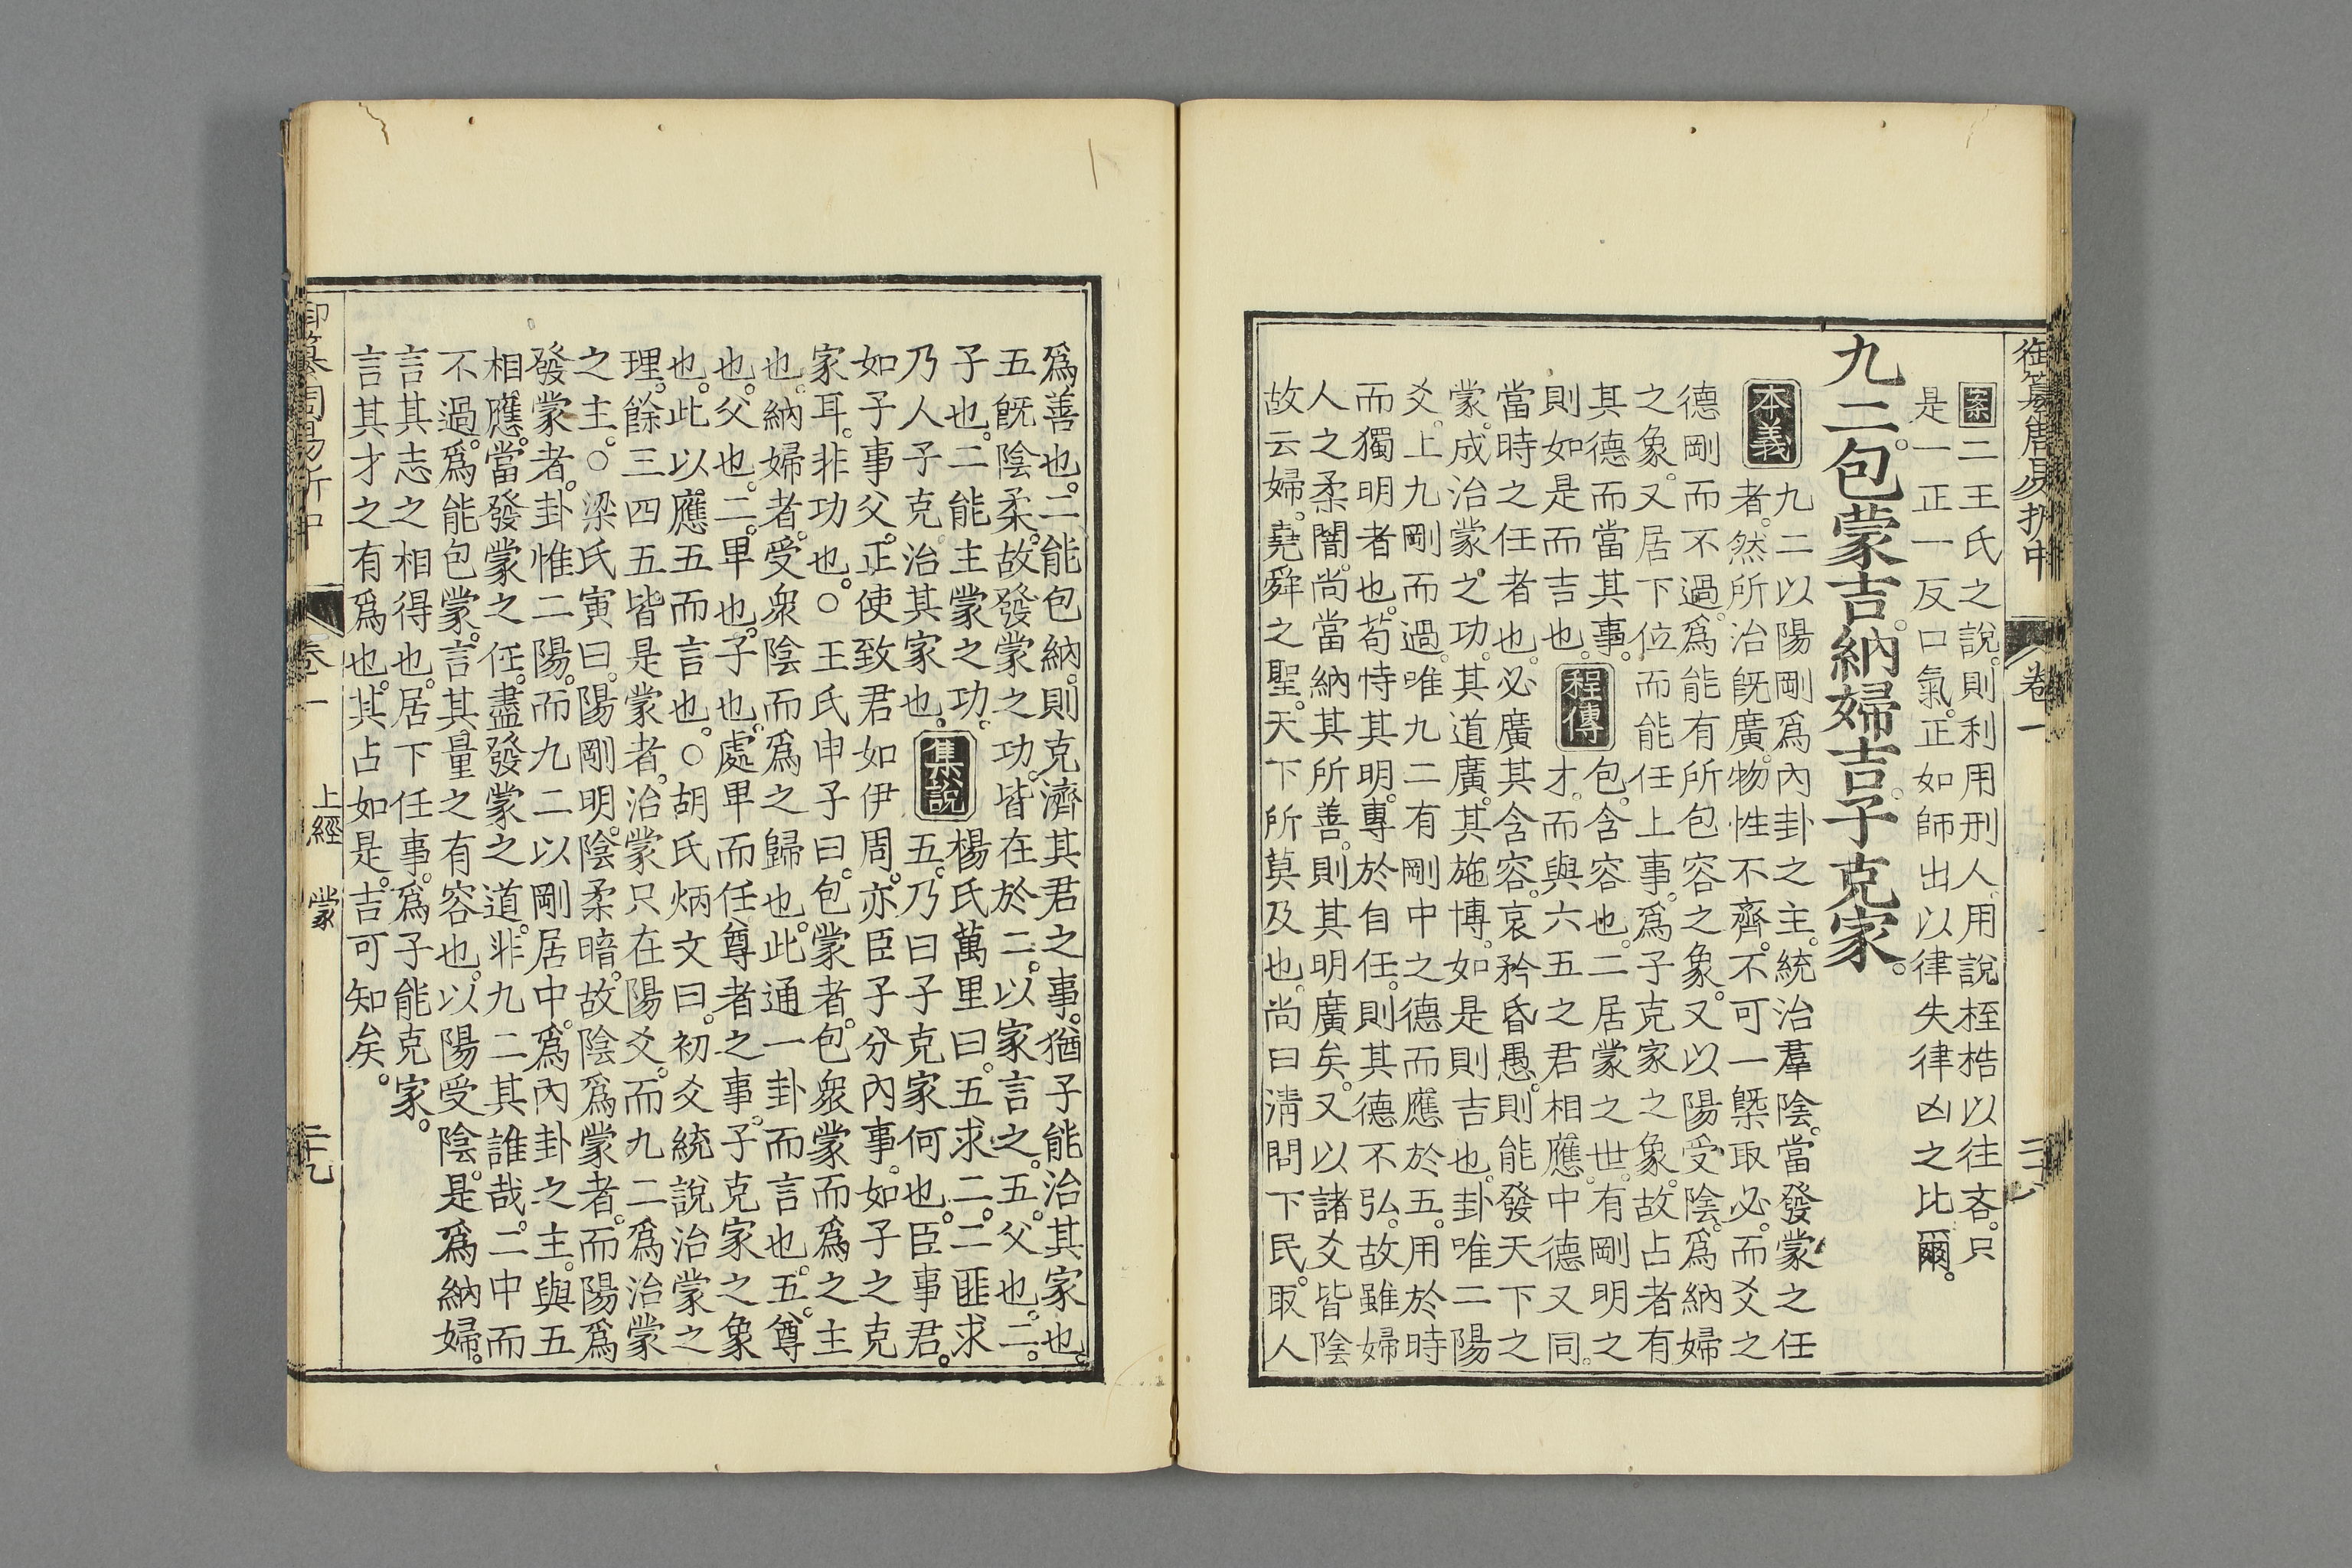 御纂周易折中 卷一 二十八
案二王氏之說。則利用刑人。用說桎梏以往吝。只
是一正一反口氣。正如師出以律失律凶之比爾。
九二。包蒙吉。納婦吉。子克家。
本義九二以陽剛爲內卦之主。統治羣陰。當發蒙之任
者。然所治既廣。物性不齊。不可一槩取必。而爻之
德剛而不過。爲能有所包容之象。又以陽受陰。爲納婦
之象。又居下位而能任上事。爲子克家之象。故占者有
其德而當其事。程傳包。含容也。二居蒙之世。有剛明之
則如是而吉也。才。而與六五之君相應。中德又同。
當時之任者也。必廣其含容。哀矜昏愚。則能發天下之
蒙。成治蒙之功。其道廣。其施博。如是則吉也。卦唯二陽
爻。上九剛而過。唯九二有剛中之德而應於五。用於時
而獨明者也。苟恃其明。專於自任。則其德不弘。故雖婦
人之柔闇。尚當納其所善。則其明廣矣。又以諸爻皆陰
故云婦。堯舜之聖。天下所莫及也。尚曰淸問下民。取人
爲善也。二能包納。則克濟其君之事。猶子能治其家也。
五既陰柔。故發蒙之功。皆在於二。以家言之。五。父也。二。
子也。二能主蒙之功。集說楊氏萬里曰。五求二。二匪求
乃人子克治其家也。五。乃曰子克家何也。臣事君。
如子事父。正使致君如伊周。亦臣子分內事。如子之克
家耳。非功也。○王氏申子曰。包蒙者。包衆蒙而爲之主
也。納婦者。受衆陰而爲之歸也。此通一卦而言也。五。尊
也。父也。二。卑也。子也。處卑而任尊者之事。子克家之象
也。此以應五而言也。○胡氏炳文曰。初爻統說治蒙之
理。餘三四五皆是蒙者。治蒙只在陽爻。而九二爲治蒙
之主。○梁氏寅曰。陽剛明。陰柔暗。故陰爲蒙者。而陽爲
發蒙者。卦惟二陽。而九二以剛居中。爲內卦之主。與五
相應。當發蒙之任。盡發蒙之道。非九二其誰哉。二中而
不過。爲能包蒙。言其量之有容也。以陽受陰。是爲納婦。
言其志之相得也。居下任事。爲子能克家。
言其才之有爲也。其占如是。吉可知矣。
御纂周易折中 卷一 上經 蒙 二十九